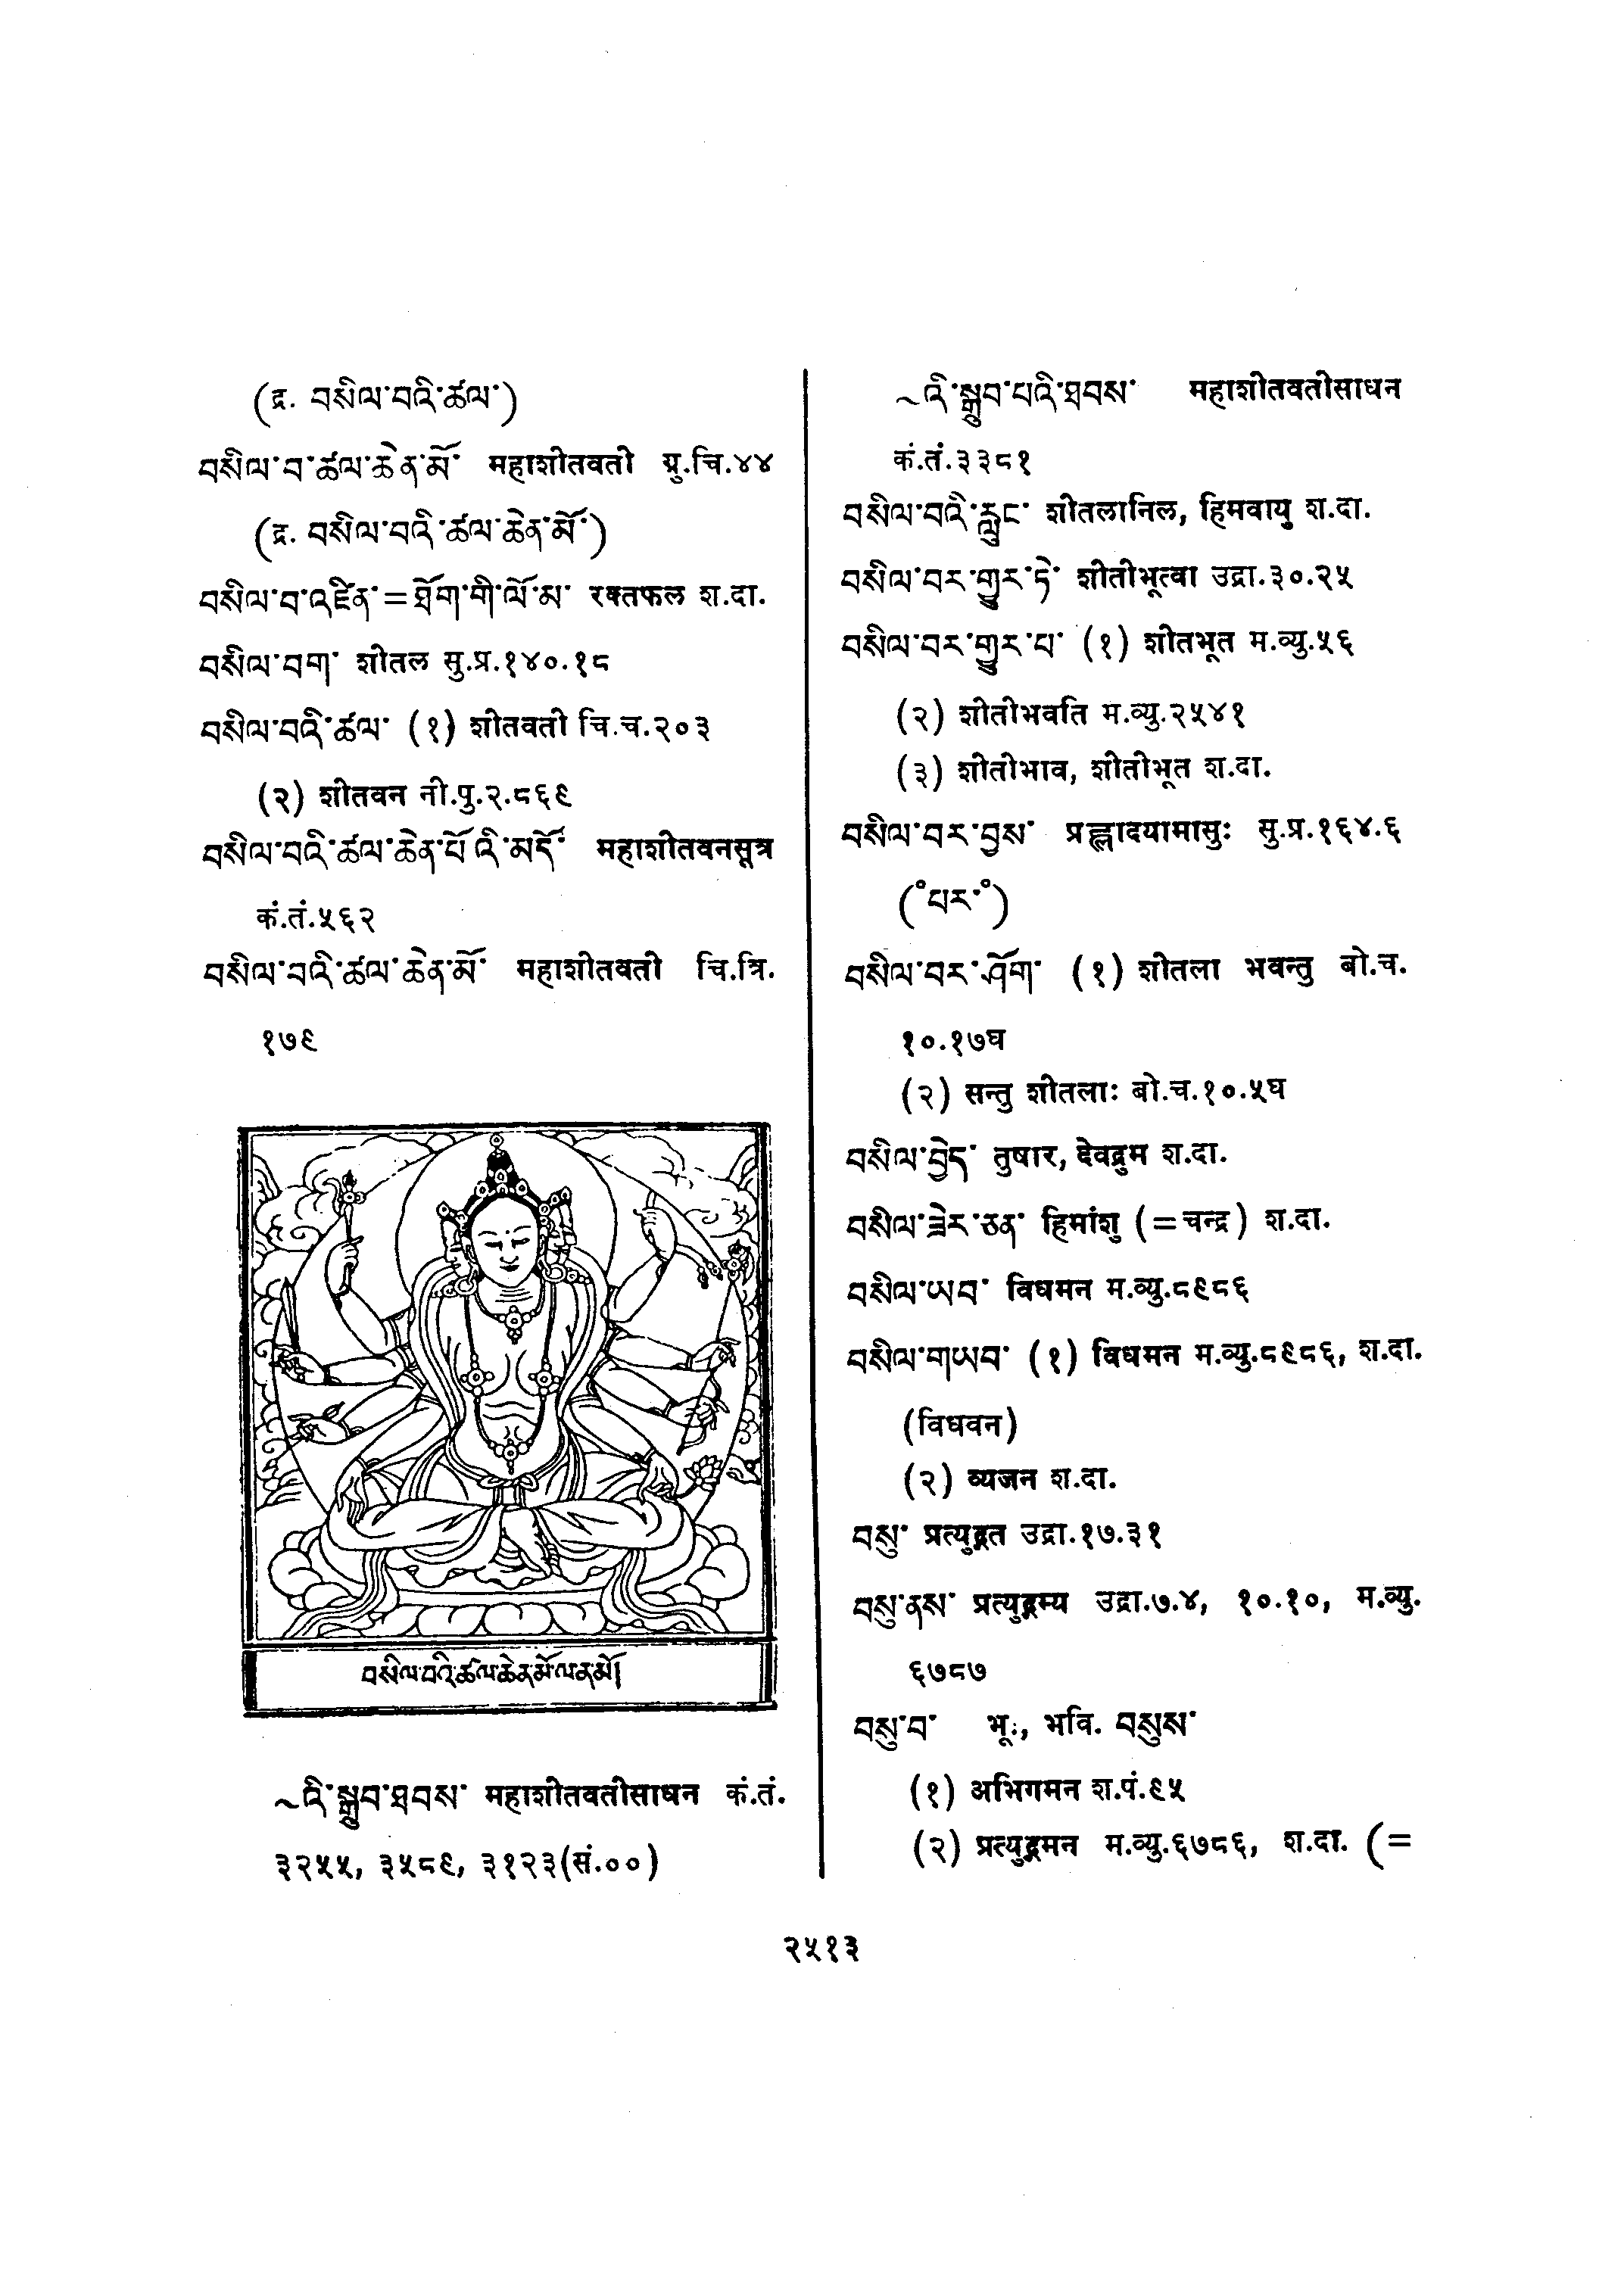 (द्र. བསིལ་བའི་ཚལ་)
བསིལ་བ་ཚལ་ཆེན་མོ་ महाशीतवती ग्रु.चि.४४
(द्र. བསིལ་བའི་ཚལ་ཆེན་མོ་)
བསིལ་བ་འཛིན་=ཐོག་གི་ལོ་མ་ रक्तफल श.दा.
བསིལ་བག་ शीतल सु.प्र.१४०.१८
བསིལ་བའི་ཚལ་ (१) शीतवती चि.च.२०३
(२) शीतवन नी.पु.२.८६९
བསིལ་བའི་ཚལ་ཆེན་པོ་འི་མདོ་ महाशीतवनसूत्र
कं.तं.५६२
བསིལ་བའི་ཚལ་ཆེན་མོ་ महाशीतवती चि.त्रि.
१७९
བསིལ་བའི་ཚལ་ཆེན་མོ་ལ་ན་མོ།
~འི་སྒྲུབ་ཐབས་ महाशीतवतीसाधन कं.तं.
३२५५, ३५८९, ३१२३(सं.००)
~འི་སྒྲུབ་པའི་ཐབས་ महाशीतवतीसाधन
कं.तं.३३८१
བསིལ་བའི་རླུང་ शीतलानिल, हिमवायु श.दा.
བསིལ་བར་གྱུར་ཏེ་ शीतीभूत्वा उद्रा.३०.२५
བསིལ་བར་གྱུར་པ་ (१) शीतभूत म.व्यु.५६
(२) शीतीभवति म.व्यु.२५४१
(३) शीतीभाव, शीतीभूत श.दा.
བསིལ་བར་བྱས་ प्रह्लादयामासुः सु.प्र.१६४.६
(॰པར་॰)
བསིལ་བར་ཤོག་ (१) शीतला भवन्तु बो.च.
१०.१७घ
(२) सन्तु शीतलाः बो.च.१०.५घ
བསིལ་བྱེད་ तुषार, देवद्रुम श.दा.
བསིལ་ཟེར་ཅན་ हिमांशु (=चन्द्र) श.दा.
བསིལ་ཡབ་ विधमन म.व्यु.८९८६
བསིལ་གཡབ་ (१) विधमन म.व्यु.८९८६, श.दा.
(विधवन)
(२) व्यजन श.दा.
བསུ་ प्रत्युद्गत उद्रा.१७.३१
བསུ་ནས་ प्रत्युद्गम्य उद्रा.७.४, १०.१०, म.व्यु.
६७८७
བསུ་བ་ भूः, भवि. བསུས་
(१) अभिगमन श.पं.९५
(२) प्रत्युद्गमन म.व्यु.६७८६, श.दा. (=
२५१३